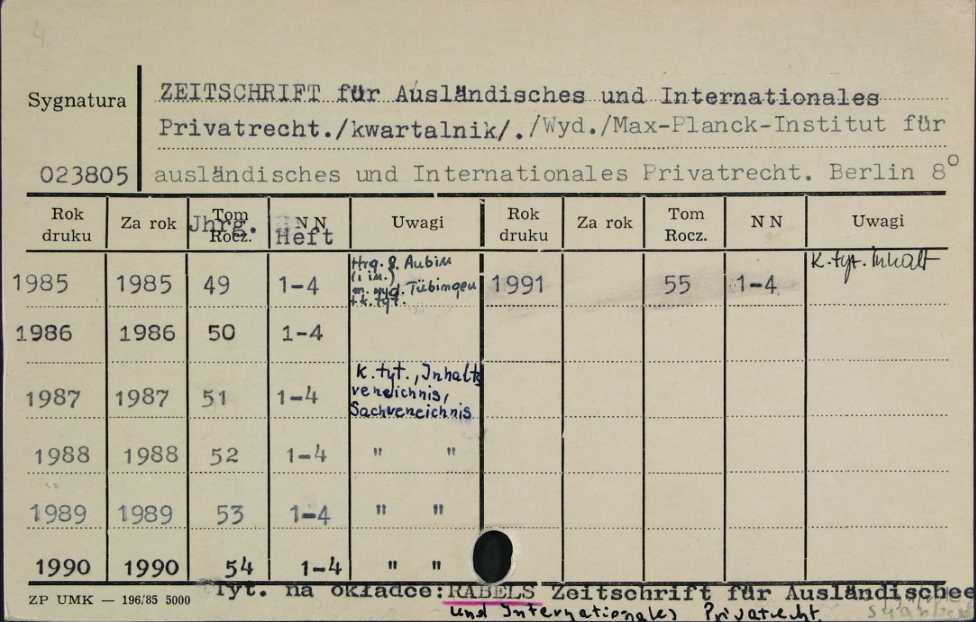 4.
Sygnatura ZEITSCHRIFT für Ausländisches und Internationales
Privatrecht./kwartalnik/./Wyd./Max-Planck-Institut für
023805 ausländisches und Internationales Privatrecht. Berlin 8°
Rok druku Za rok Tom Rocz. Jhrg. NN Heft Uwagi Rok druku Za rok Tom Rocz. NN Uwagi
K.tyt. Inhalt
1985 1985 49 1-4 Hrg. J. Aubin (i in.) m. wyd. Tübingen + k. tyt. 1991 55 1-4
1986 1986 50 1-4
1987 1987 51 1-4 K. tyt., Inhalts verzeichnis, Sachverzeichnis
1988 1988 52 1-4 " "
1989 1989 53 1-4 " "
1990 1990 54 1-4 " "
Tyt. na okładce: RABELS Zeitschrift für Ausländischee
ZP UMK — 196/85 5000
und Internationales Privatrecht.